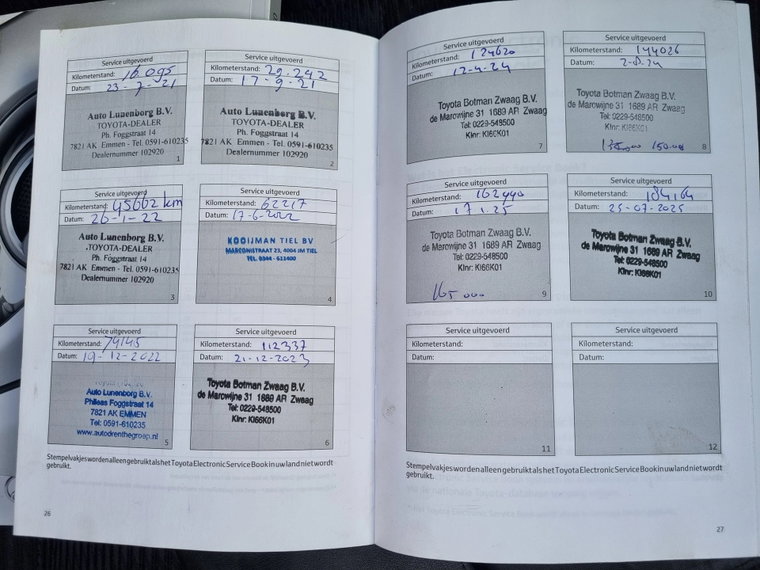 Service uitgevoerd
Kilometerstand: 16.095
Datum: 23-7-21
Auto Lunenborg B.V.
TOYOTA-DEALER
Ph. Foggstraat 14
7821 AK Emmen - Tel. 0591-610235
Dealernummer 102920
1
Service uitgevoerd
Kilometerstand: 29.242
Datum: 17-9-21
Auto Lunenborg B.V.
TOYOTA-DEALER
Ph. Foggstraat 14
7821 AK Emmen - Tel. 0591-610235
Dealernummer 102920
2
Service uitgevoerd
Kilometerstand: 45662 km
Datum: 26-1-22
Auto Lunenborg B.V.
TOYOTA-DEALER
Ph. Foggstraat 14
7821 AK Emmen - Tel. 0591-610235
Dealernummer 102920
3
Service uitgevoerd
Kilometerstand: 62217
Datum: 17-6-2022
KOOIJMAN TIEL BV
MARCONISTRAAT 23, 4004 JM TIEL
TEL. 0344 - 611400
4
Service uitgevoerd
Kilometerstand: 79145
Datum: 19-12-2022
Auto Lunenborg B.V.
Phileas Foggstraat 14
7821 AK EMMEN
Tel: 0591-610235
www.autodrenthegroep.nl
5
Service uitgevoerd
Kilometerstand: 112337
Datum: 21-12-2023
Toyota Botman Zwaag B.V.
de Marowijne 31 1689 AR Zwaag
Tel: 0229-548500
Klnr: KI66K01
6
Stempelvakjes worden alleen gebruikt als het Toyota Electronic Service Book in uw land niet wordt
gebruikt.
26
Service uitgevoerd
Kilometerstand: 124620
Datum: 12-4-24
Toyota Botman Zwaag B.V.
de Marowijne 31 1689 AR Zwaag
Tel: 0229-548500
Klnr: KI66K01
7
Service uitgevoerd
Kilometerstand: 144026
Datum: 2-8-24
Toyota Botman Zwaag B.V.
de Marowijne 31 1689 AR Zwaag
Tel: 0229-548500
Klnr: KI66K01
150.000
8
Service uitgevoerd
Kilometerstand: 162440
Datum: 17 1.25
Toyota Botman Zwaag B.V.
de Marowijne 31 1689 AR Zwaag
Tel: 0229-548500
Klnr: KI66K01
165 000
9
Service uitgevoerd
Kilometerstand: 184164
Datum: 25-07-2025
Toyota Botman Zwaag B.V.
de Marowijne 31 1689 AR Zwaag
Tel: 0229-548500
Klnr: KI66K01
10
Service uitgevoerd
Kilometerstand:
Datum:
11
Service uitgevoerd
Kilometerstand:
Datum:
12
Stempelvakjes worden alleen gebruikt als het Toyota Electronic Service Book in uw land niet wordt
gebruikt.
27